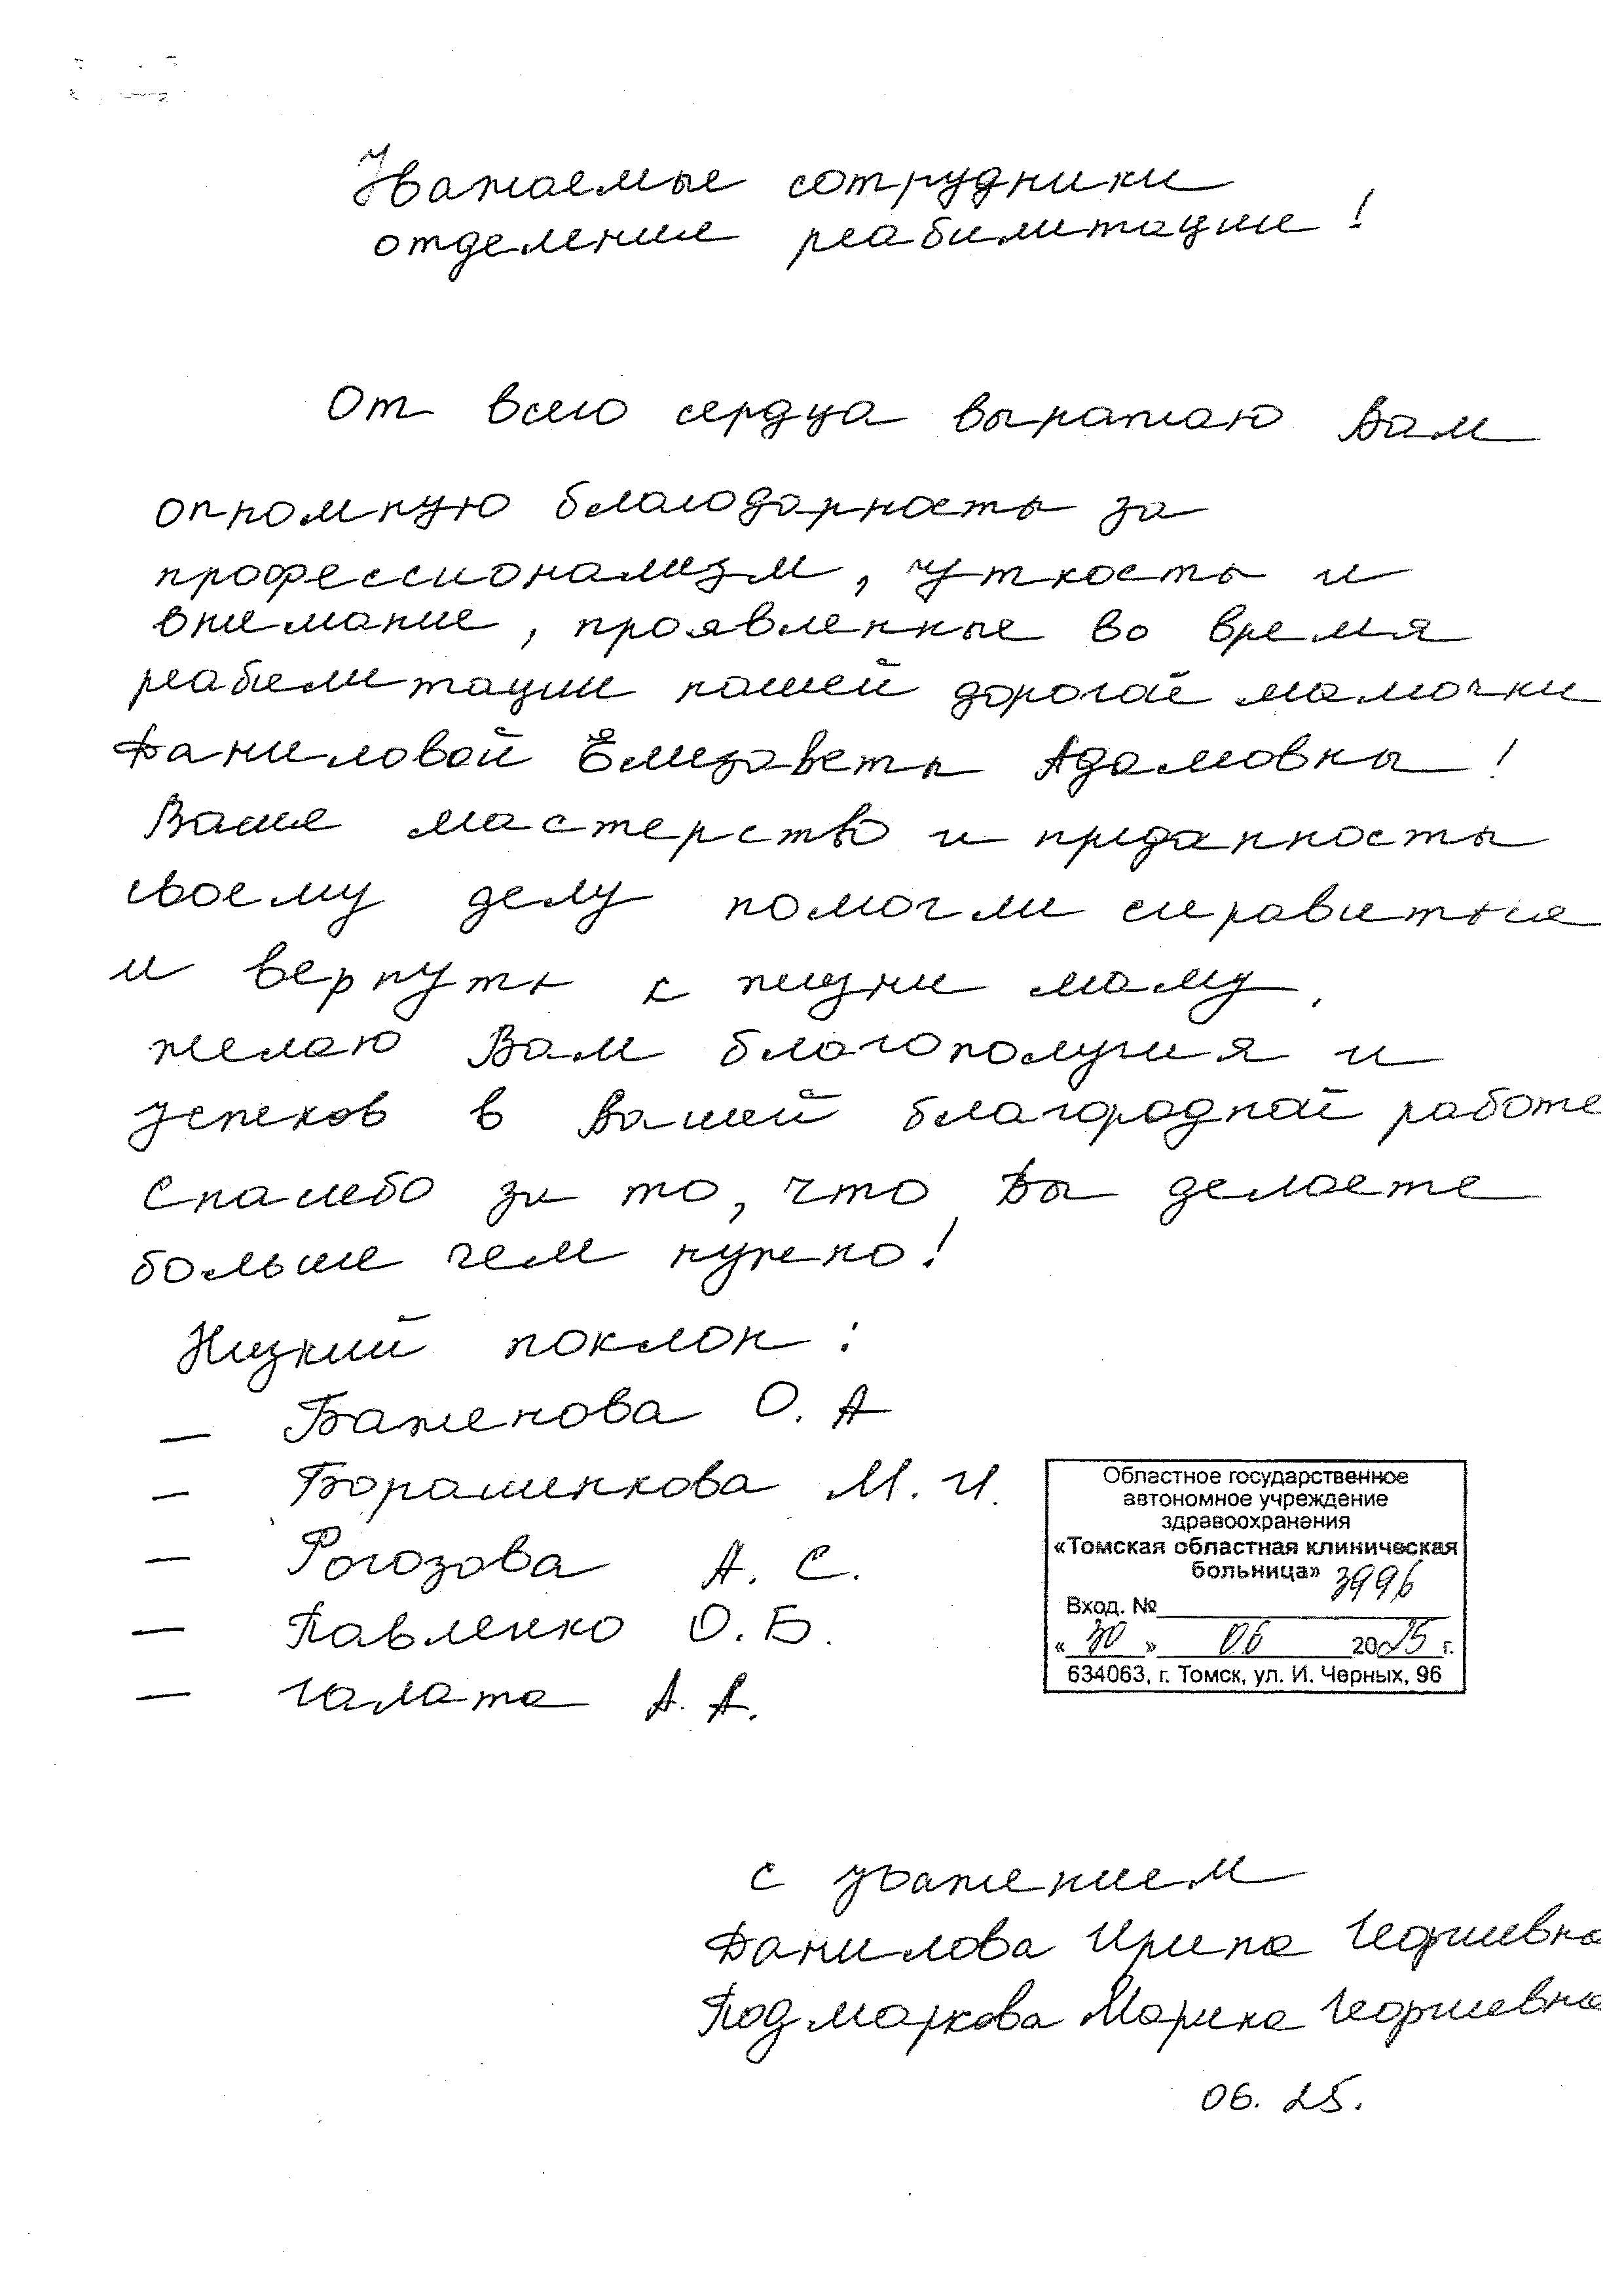 Уважаемые сотрудники
отделения реабилитации!
От всего сердца выражаю Вам
огромную благодарность за
профессионализм, чуткость и
внимание, проявленные во время
реабилитации нашей дорогой мамочки
Даниловой Елизаветы Адамовны!
Ваше мастерство и преданность
своему делу помогли справиться
и вернуть к жизни маму.
Желаю Вам благополучия и
успехов в Вашей благородной работе
Спасибо за то, что Вы делаете
больше чем нужно!
Низкий поклон:
— Баженова О. А
— Борашенкова М. И.
— Рогозова А. С.
— Павленко О. Б.
— Галата А. А.
Областное государственное
автономное учреждение
здравоохранения
«Томская областная клиническая
больница»
Вход. № 3996
«30» 06 2025 г.
634063, г. Томск, ул. И. Черных, 96
с уважением
Данилова Ирина Георгиевна
Подмаркова Марина Георгиевна
06. 25.